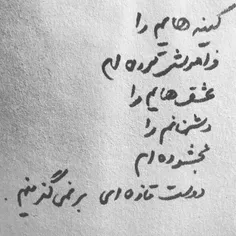 کینه هایم را
فراموش کرده ام
عشق هایم را
دشمنانم را
بخشوده ام
دوست تازه ای بر نمی گزینم .